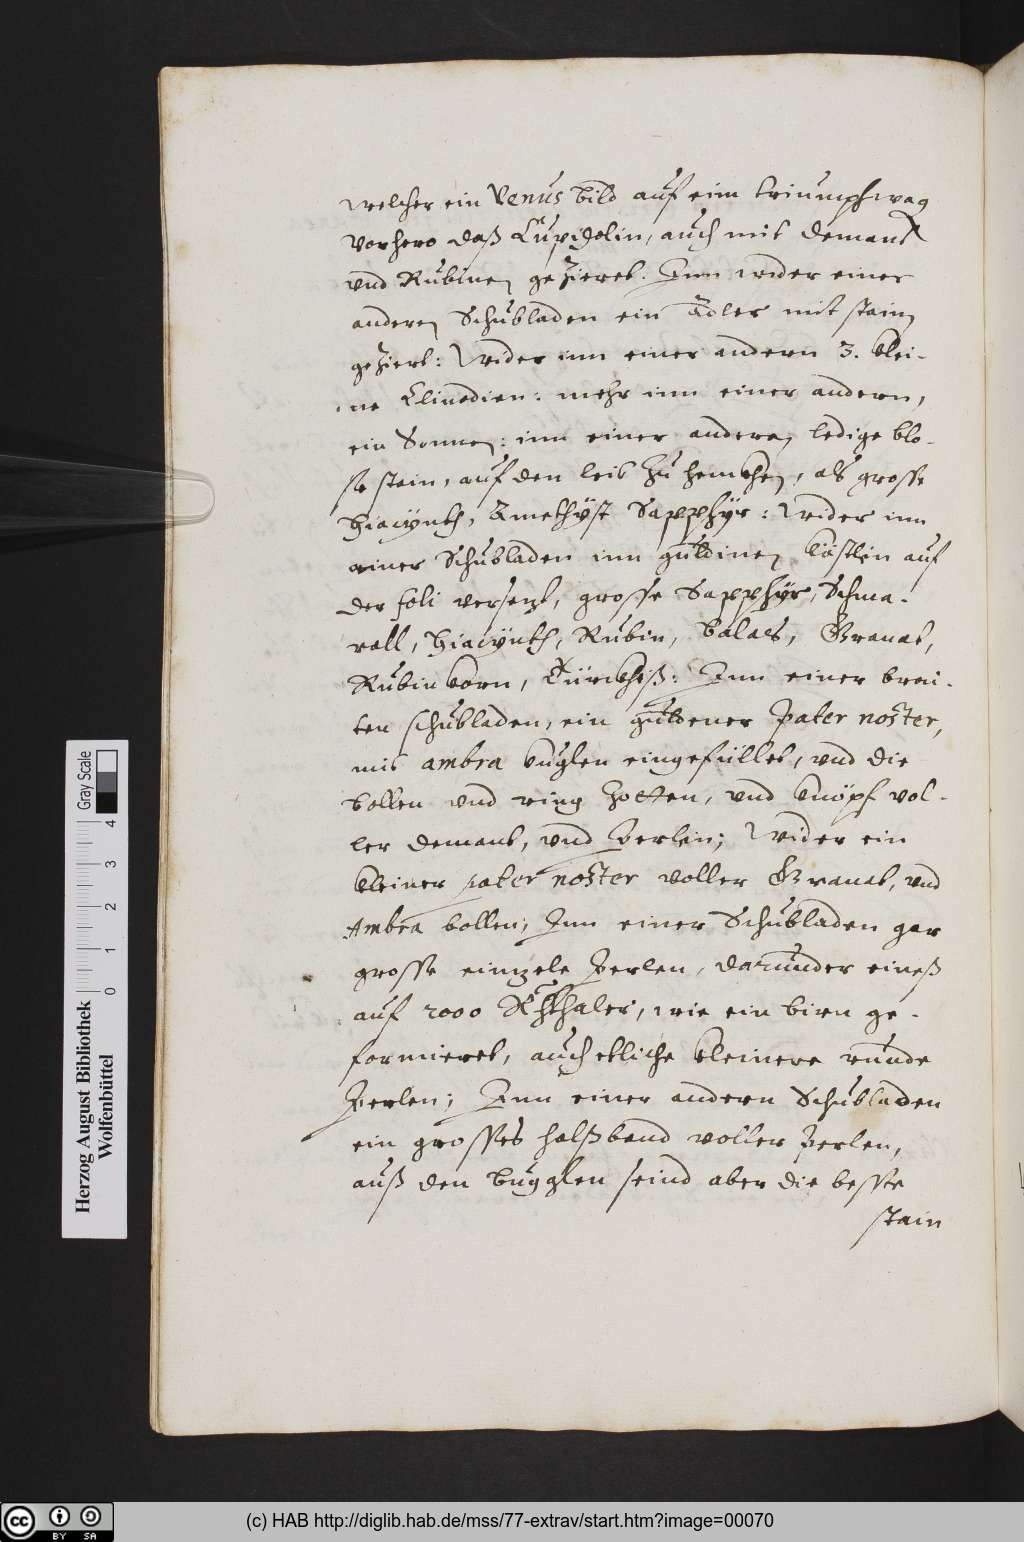 welcher ein Venus bild auf eim triumphwag
vorhero daß Cupidolin, auch mit demant
vnd Rubinen gezieret. Inn wider einer
anderen Schubladen ein Adler mit stain
geziert: Wider inn einer andern 3. klei-
ne Clinodien: mehr inn einer andern,
ein Sonnen: inn einer anderen ledige blo-
sse stein, auf den leib zu hencken, als grosse
Hiacÿnth, Amethÿst Sapphÿr: Wider inn
einer Schubladen inn guldinen kästlin auf
der foli versezt, grosse Sapphÿr, Schma-
rall, Hiacÿnth, Rubin, balaes, Granat,
Rubin korn, Türckhiß: Inn einer brai-
ten schubladen, ein guldener pater noster,
mit ambra kuglen eingefüllet, vnd die
bollen vnd ring zotten, vnd knöpf vol-
ler demant, vnd Perlen; Wider ein
kleiner pater noster voller Granat, vnd
Ambra bollen; Inn einer Schubladen gar
grosse eintzele Perlen, darunder eineß
auf 2000 Rthaler, wie ein birn ge-
formieret, auch etliche kleinere runde
Perlen; Inn einer andern Schubladen
ein grosses halßband voller Perlen,
auß den bugglen seind aber die beste
stain
Herzog August Bibliothek
Wolfenbüttel
Gray Scale
0 1 2 3 4
cc BY SA
(c) HAB http://diglib.hab.de/mss/77-extrav/start.htm?image=00070